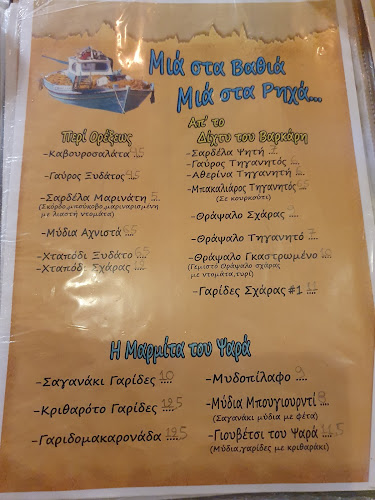 Μιά στα Βαθιά
Μιά στα Ρηχά...
Περί Ορέξεως
-Καβουροσαλάτα
-Γαύρος Ξυδάτος
-Σαρδέλα Μαρινάτη 5
(Σκόρδο,μπούκοβο,μαριναρισμένη
με λιαστή ντομάτα)
-Μύδια Αχνιστά 6.5
-Χταπόδι Ξυδάτο
-Χταπόδι Σχάρας
Απ' το
Δίχτυ του Βαρκάρη
-Σαρδέλα Ψητή 7
-Γαύρος Τηγανητός
-Αθερίνα Τηγανητή
-Μπακαλιάρος Τηγανητός 6.5
(Σε κουρκούτι)
-Θράψαλο Σχάρας
-Θράψαλο Τηγανητό 7
-Θράψαλο Γκαστρωμένο 10
(Γεμιστό Θράψαλο σχάρας
με ντομάτα,τυρί)
-Γαρίδες Σχάρας #1 11
Η Μαρμίτα του Ψαρά
-Σαγανάκι Γαρίδες 10
-Κριθαρότο Γαρίδες 12.5
-Γαριδομακαρονάδα 12.5
-Μυδοπίλαφο 9
-Μύδια Μπουγιουρντί 8
(Σαγανάκι μύδια με φέτα)
-Γιουβέτσι του Ψαρά 11.5
(Μύδια,γαρίδες με κριθαράκι)